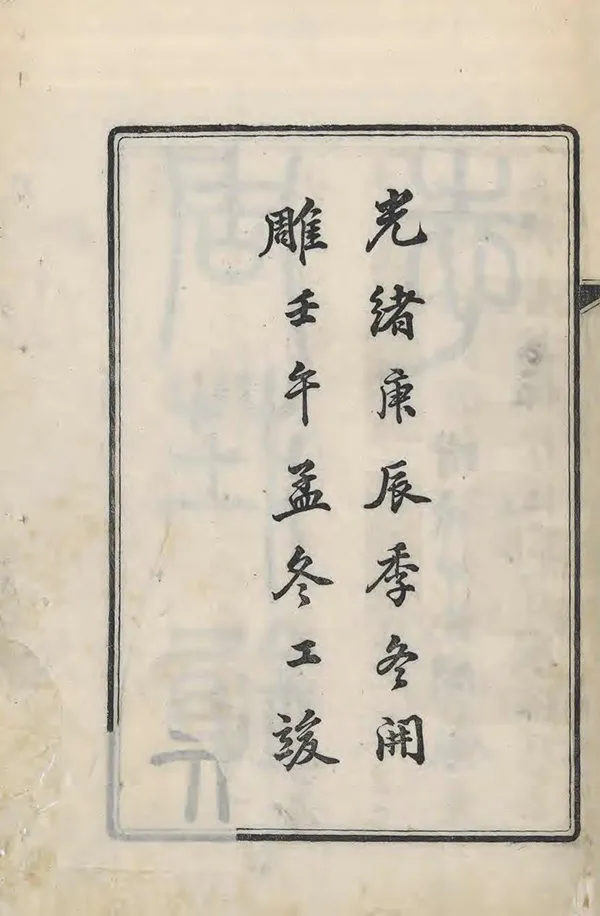 光緒庚辰季冬開
雕壬午孟冬工竣